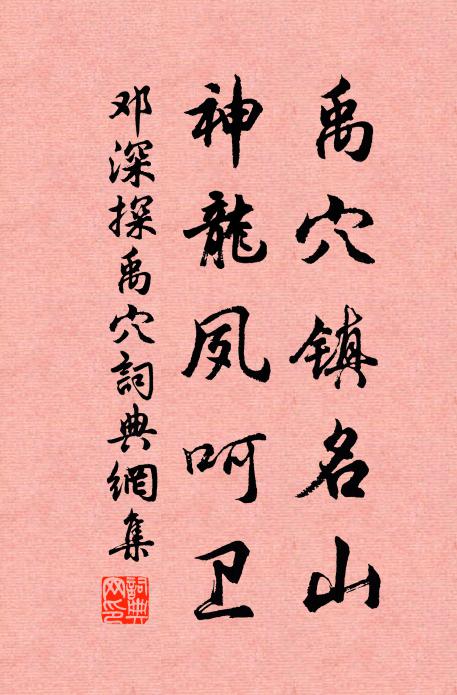 禹穴镇名山
神龍夙呵卫
邓深探禹穴詞典網集
詞典网印